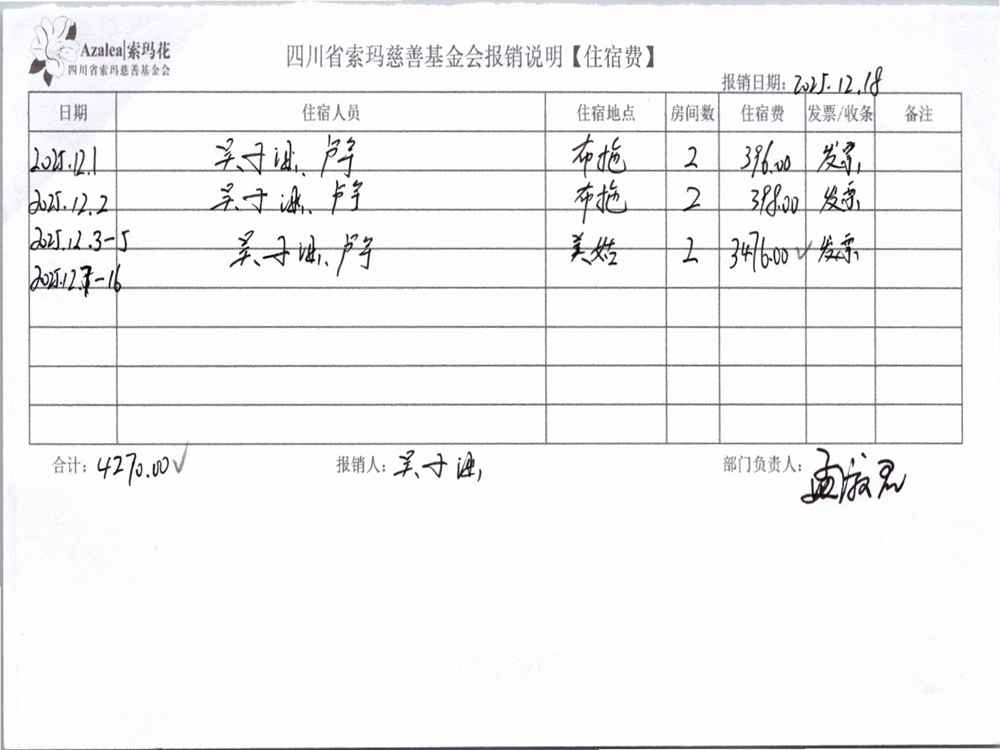 Azalea|索玛花
四川省索玛慈善基金会
四川省索玛慈善基金会报销说明【住宿费】
报销日期: 2025.12.18
日期 住宿人员 住宿地点 房间数 住宿费 发票/收条 备注
2025.12.1 吴于 卢宁 布拖 2 396.00 发票
2025.12.2 吴于 卢宁 布拖 2 398.00 发票
2025.12.3-5 吴于 卢宁 美姑 2 3476.00 ✓ 发票
2025.12. -16
合计: 4270.00 ✓ 报销人: 吴于 部门负责人: 孟